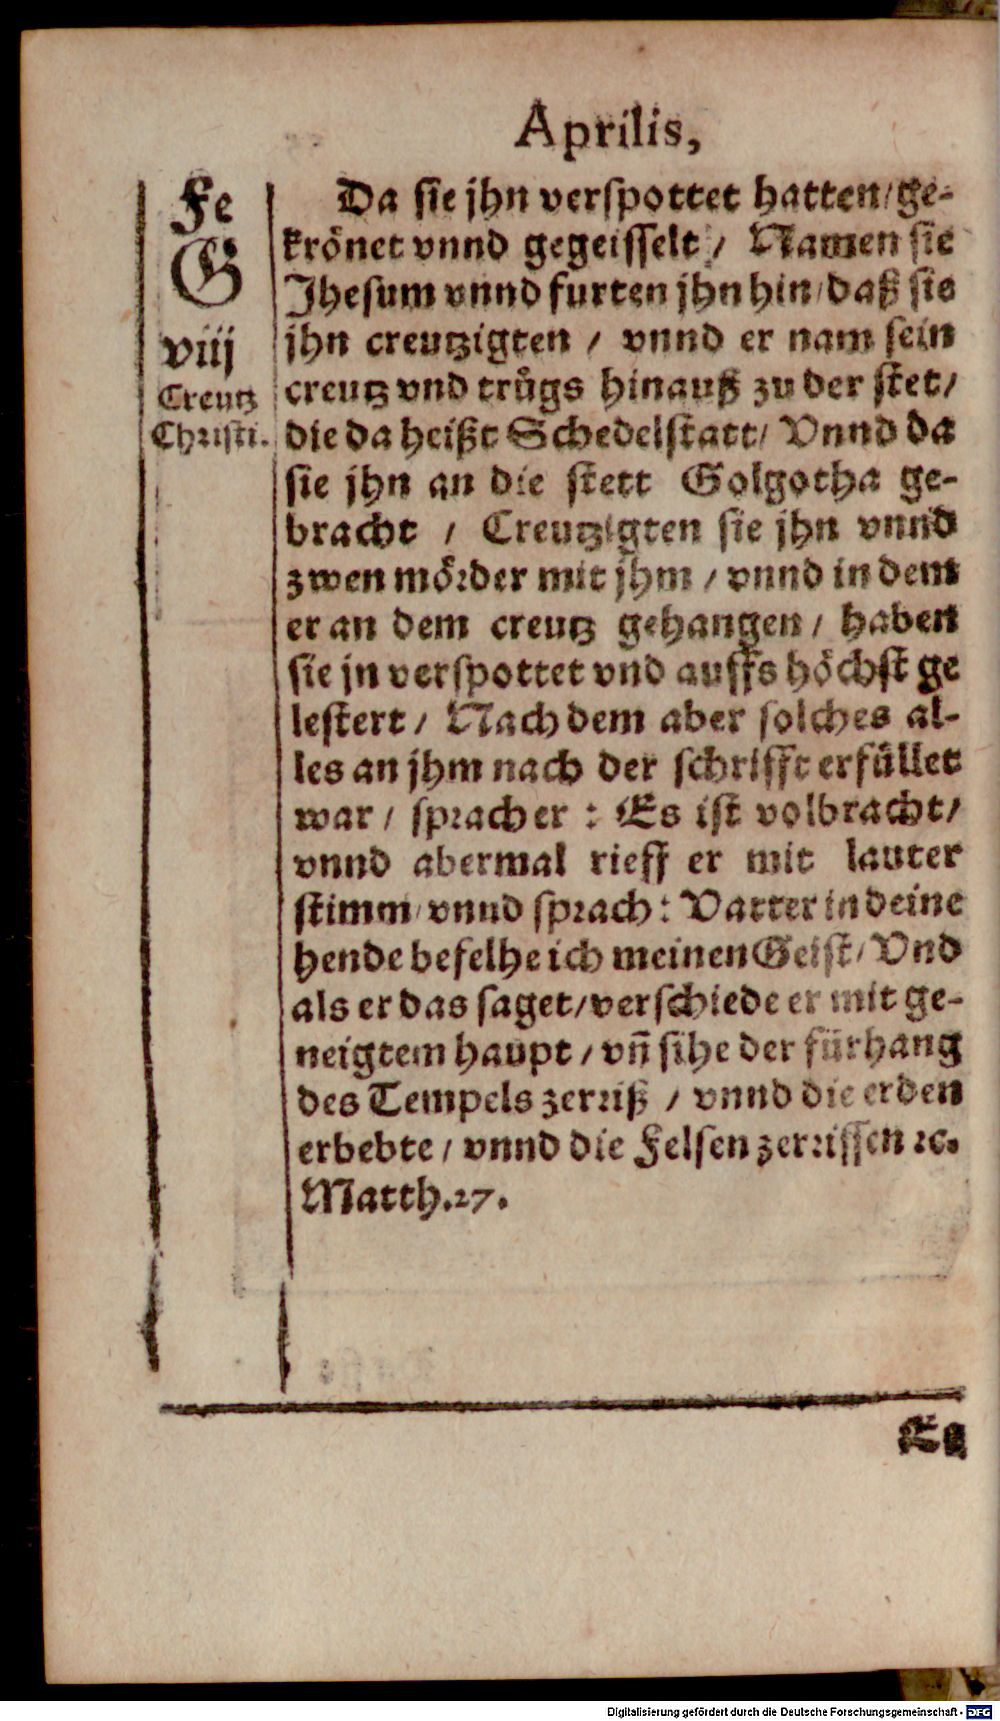 Aprilis,
Fe
G
viij
Creutz
Christi.
Da sie jhn verspottet hatten/ ge-
krönet vnnd gegeisselt / Namen sie
Jhesum vnnd furten jhn hin/ daß sie
jhn creutzigten / vnnd er nam sein
creutz vnd trůgs hinauß zu der stet/
die da heißt Schedelstatt/ Vnnd da
sie jhn an die stett Golgotha ge-
bracht / Creutzigten sie jhn vnnd
zwen mörder mit jhm / vnnd in dem
er an dem creutz gehangen / haben
sie jn verspottet vnd auffs höchst ge
lestert / Nach dem aber solches al-
les an jhm nach der schrifft erfüllet
war / sprach er : Es ist volbracht/
vnnd abermal rieff er mit lauter
stimm/ vnnd sprach: Vatter in deine
hende befelhe ich meinen Geist/ Vnd
als er das saget/ verschiede er mit ge-
neigtem haupt / vñ sihe der fürhang
des Tempels zerriß / vnnd die erden
erbebte / vnnd die Felsen zerrissen ꝛc.
Matth.27.
Es
Digitalisierung gefördert durch die Deutsche Forschungsgemeinschaft - DFG